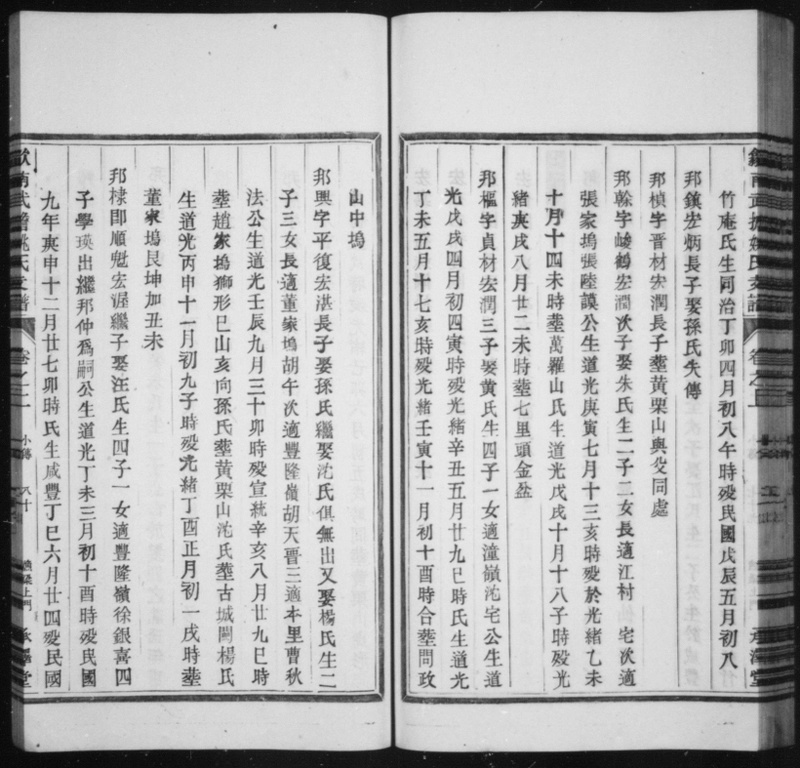 竹庵氏生同治丁卯四月初八午時殁民國戊辰五月初八
邦鎮宏炳長子娶孫氏失傳
邦楨字晋材宏潤長子塟黄栗山與父同處
邦榦字宏潤次子娶朱氏生二子二女長適江村 宅次適
張家塢張陸謨公生道光庚寅七月十三亥時殁於光緒乙未
十月十四未時塟萬羅山氏生道光戊戌十月十八子時殁光
緒庚戌八月廿二未時塟七里頭金盆
邦樞字貞材宏潤三子娶黄氏生四子一女適潼嶺沈宅公生道
光戊戌四月初四寅時殁光緒辛丑五月廿九巳時氏生道光
丁未五月十七亥時殁光緒壬寅十一月初十酉時合塟問政
山中塢
邦興字平復宏湛長子娶孫氏繼娶沈氏俱無出又娶楊氏生二
子三女長適董家塢胡午次適豐隆嶺胡天晋三適本里曹秋
法公生道光壬辰九月三十卯時殁宣統辛亥八月廿九巳時
塟趙家塢獅形巳山亥向孫氏塟黄栗山沈氏塟古城關楊氏
生道光丙申十一月初九子時殁光緒丁酉正月初一戌時塟
董家塢艮坤加丑未
邦棣即順魁宏渥繼子娶汪氏生四子一女適豐隆嶺徐銀喜四
子學瑛出繼邦仲爲嗣公生道光丁未三月初十酉時殁民國
九年庚申十二月廿七卯時氏生咸豐丁巳六月廿四殁民國
南武擔姚氏支譜 卷之二 小傳 八十 承澤堂